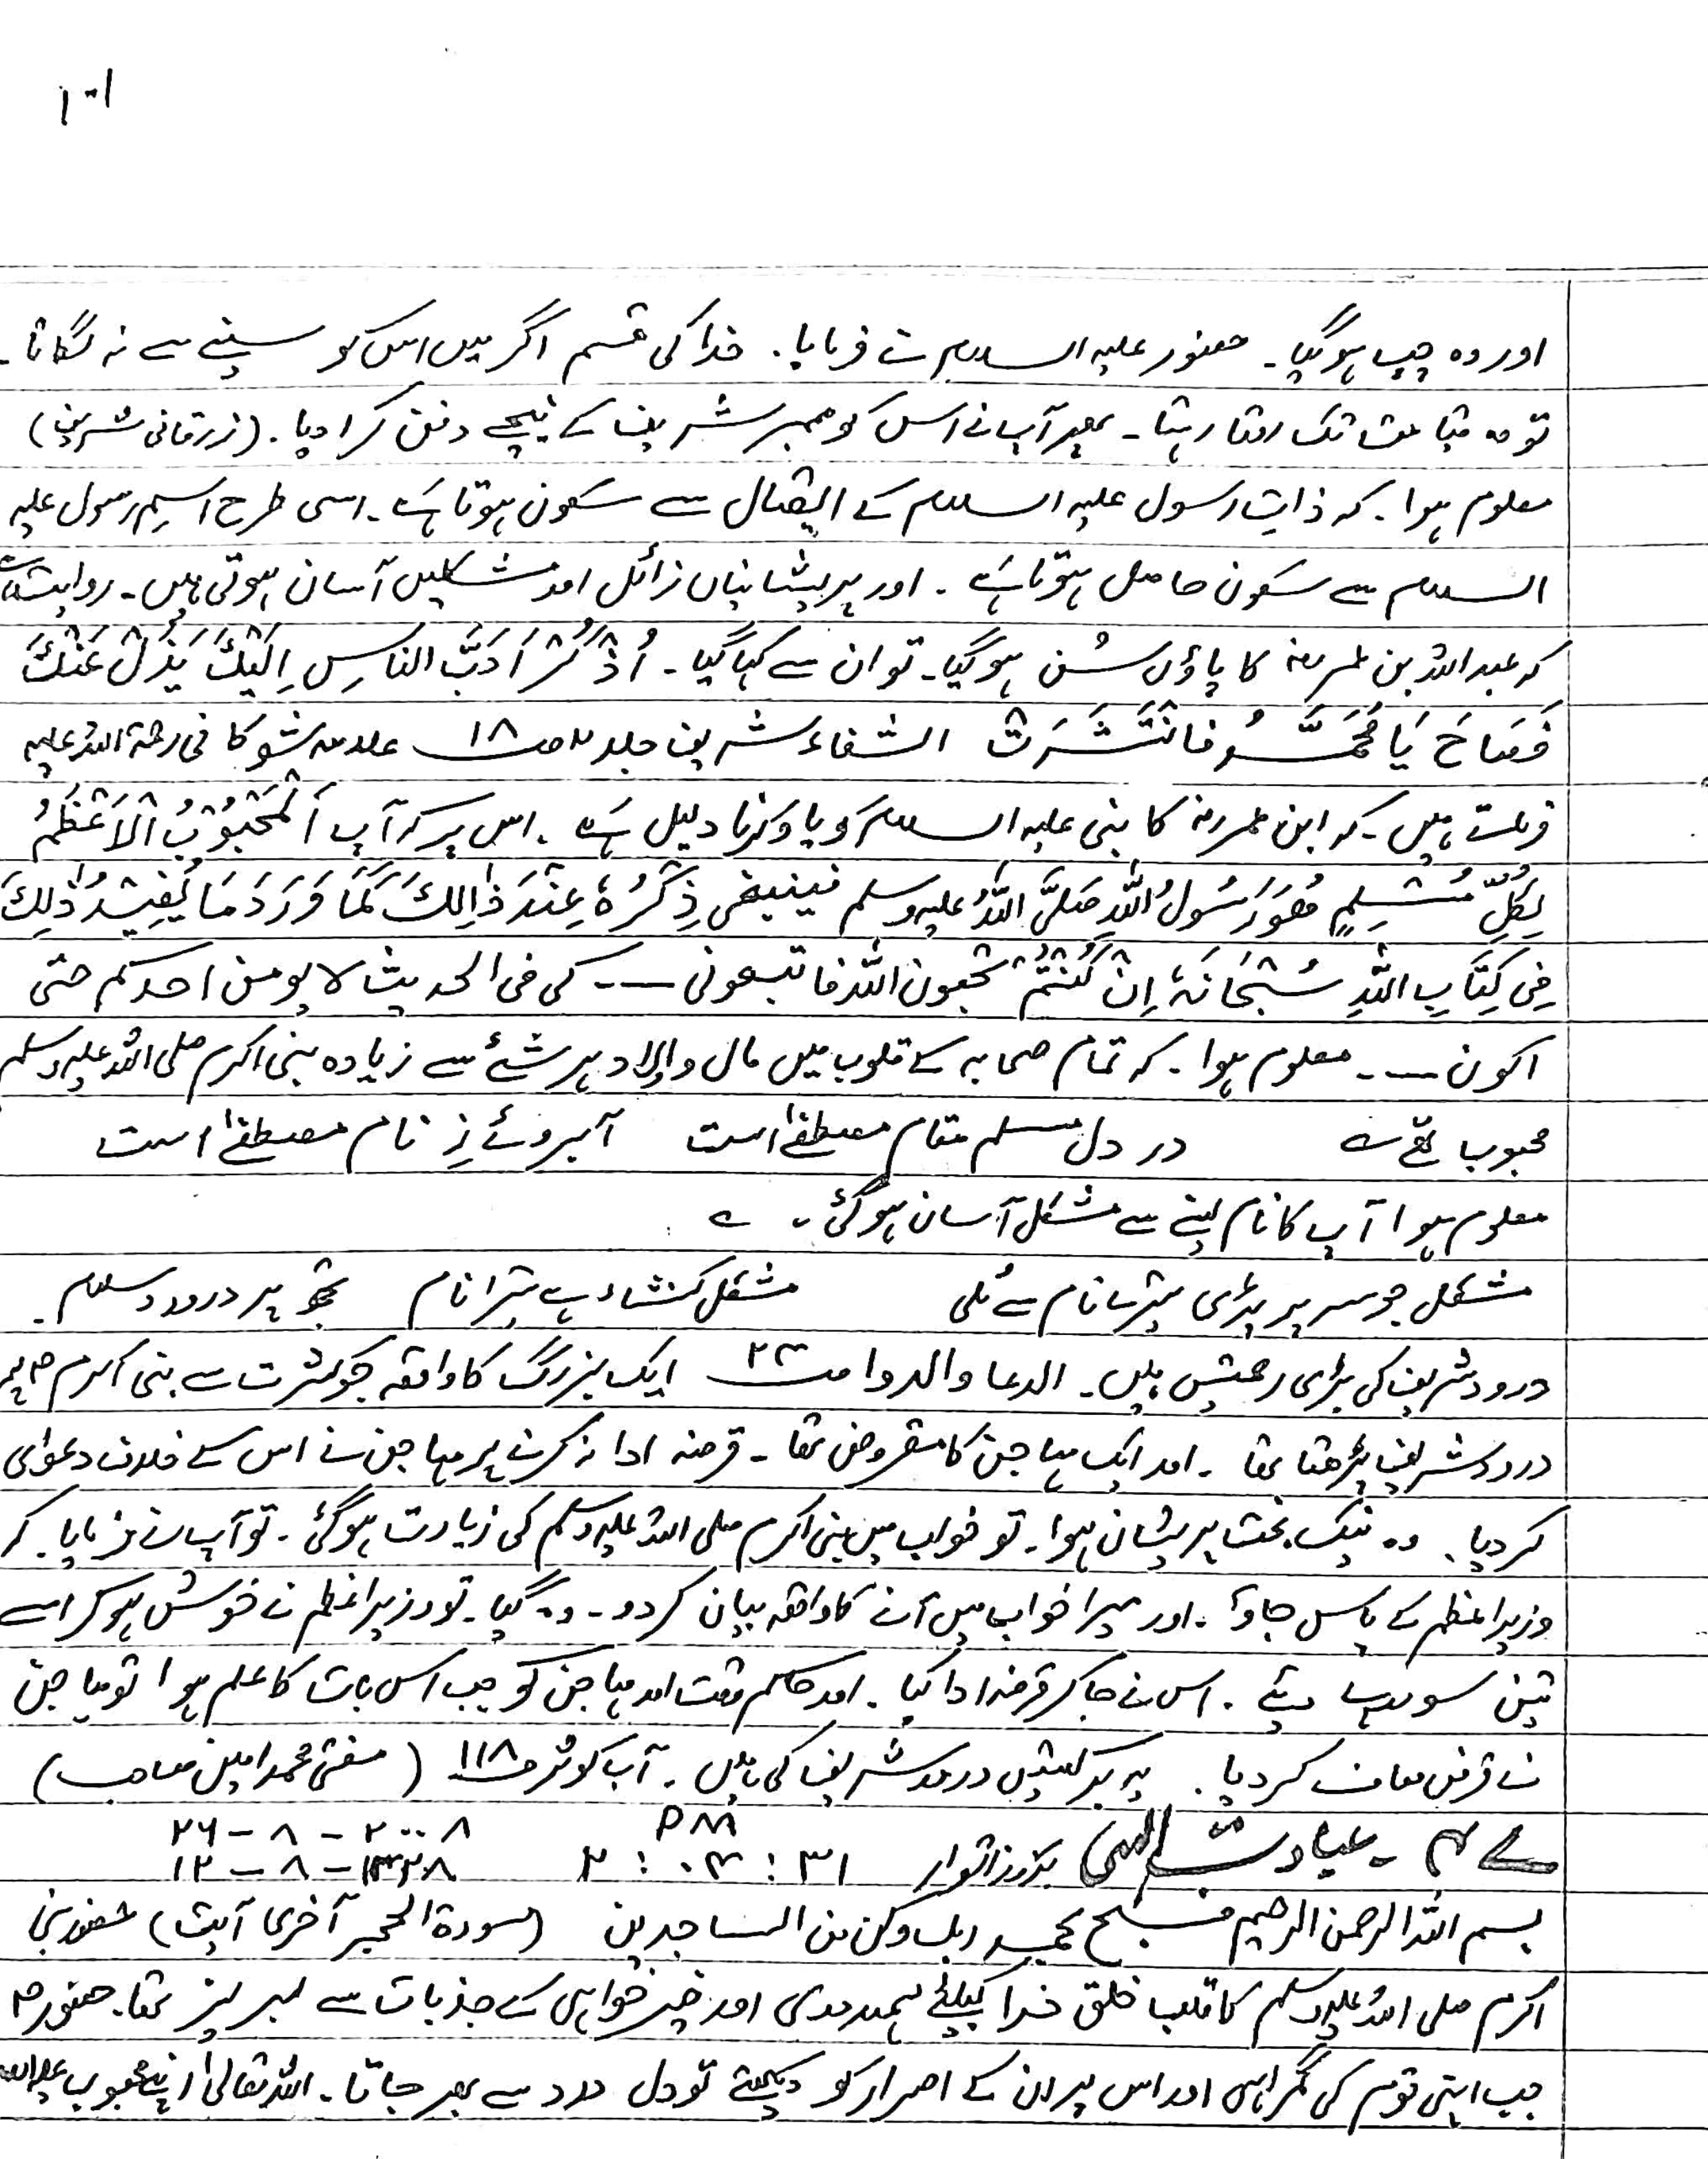 ۱۰۱
اور وہ چپ ہوگیا۔ حضور علیہ السلام نے فرمایا۔ خدا کی قسم اگر میں اس کو سینے سے نہ لگاتا۔
تو وہ قیامت تک روتا رہتا۔ پھر آپ نے اس کو ممبر شریف کے نیچے دفن کرا دیا۔ (زرقانی شریف)
معلوم ہوا۔ کہ ذاتِ رسول علیہ السلام کے ایصال سے سکون ہوتا ہے۔ اسی طرح اسمِ رسول علیہ
السلام سے سکون حاصل ہوتا ہے۔ اور پریشانیاں زائل اور مشکلیں آسان ہوتی ہیں۔ روایت ہے
کہ عبداللہ بن عمر رضہ کا پاؤں سُن ہوگیا۔ تو ان سے کہا گیا۔ اُذْکُرْ اَحَبَّ الناسِ اِلَیْکَ یَزُلْ عَنْکَ
فَصَاحَ یَا مُحَمَّدُ فانْتَشَرَتْ الشفاء شریف جلد ۲ صـ ۱۸ علامہ شوکانی رحمۃ اللہ علیہ
فرماتے ہیں۔ کہ ابن عمر رضہ کا نبی علیہ السلام کو یاد کرنا دلیل ہے۔ اس پر کہ آپ اَلْمَحْبُوْبُ الْاَعْظَمُ
لِکُلِّ مُسْلِمٍ ھُوَ رَسُوْلُ اللّٰہِ صَلَّی اللّٰہُ علیہ وسلم فینبغی ذِکْرُہٗ عِنْدَ ذٰالِکَ کَمَا وَرَدَ مَا یُفِیْدُ ذٰلِکَ
فِی کِتَابِ اللّٰہِ سُبْحَانَہٗ اِنْ کُنْتُمْ تحبون اللّٰہ فاتبعونی ـــ کی فی الحدیث لا یومن احدکم حتی
اکون ـــ۔ معلوم ہوا۔ کہ تمام صحابہ کے قلوب میں مال و اولاد ہر شئے سے زیادہ نبی اکرم صلی اللہ علیہ وسلم
محبوب تھے ؎ در دل مسلم مقام مصطفےٰ است آبروئے زِ نام مصطفےٰ است
معلوم ہوا آپ کا نام لینے سے مشکل آسان ہوگئی۔ ؎
مشکل جو سر پر پڑی تیرے نام سے ٹلی مشکل کشاء ہے تیرا نام تجھ پر درود و سلام۔
درود شریف کی بڑی رحمتیں ہیں۔ الدعا والدوا صـ ۲۳ ایک بزرگ کا واقعہ جو کثرت سے نبی اکرم ؐ پر
درود شریف پڑھتا تھا۔ اور ایک مہاجن کا مقروض تھا۔ قرضہ ادا نہ کرنے پر مہاجن نے اس کے خلاف دعوای
کر دیا۔ وہ نیک بخت پریشان ہوا۔ تو خواب میں نبی اکرم صلی اللہ علیہ وسلم کی زیارت ہوگئی۔ تو آپ نے فرمایا۔ کہ
وزیر اعظم کے پاس جاؤ۔ اور میرا خواب میں آنے کا واقعہ بیان کر دو۔ وہ گیا۔ تو وزیر اعظم نے خوش ہو کر اسے
تین سو روپے دیئے۔ اس نے جا کر قرضہ ادا کیا۔ اور حاکم وقت اور مہاجن کو جب اس بات کا علم ہوا تو مہاجن
نے قرض معاف کر دیا۔ یہ برکتیں درود شریف کی ہیں۔ آب کوثر صـ ۱۱۸ (مفتی محمد امین صاحب)
۴۔ عبادت الٰہی بروز اتوار ۳۱ : ۰۳ : ۲ PM ۲۰۰۸ - ۸ - ۲۶
۱۲ - ۸ -
بسم اللہ الرحمن الرحیم فسبح بحمد ربک وکن من الساجدین (سورۃ الحجر آخری آیت) حضور نبی
اکرم صلی اللہ علیہ وسلم کا قلب خلق خدا کیلئے ہمدردی اور خیر خواہی کے جذبات سے لبریز تھا۔ حضور ؐ
جب اپنی قوم کی گمراہی اور اس پر ان کے اصرار کو دیکھتے تو دل درد سے بھر جاتا۔ اللہ تعالیٰ اپنے محبوب علیہ السلام